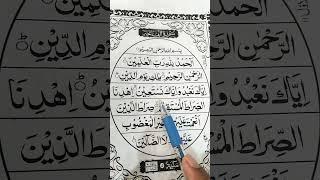 بِسْمِ اللهِ الرَّحْمٰنِ الرَّحِيْمِ
اَلْحَمْدُ لِلّٰهِ رَبِّ الْعٰلَمِيْنَ
الرَّحْمٰنِ الرَّحِيْمِ مٰلِكِ يَوْمِ الدِّيْنِ
اِيَّاكَ نَعْبُدُ وَاِيَّاكَ نَسْتَعِيْنُ اِهْدِنَا
الصِّرَاطَ الْمُسْتَقِيْمَ صِرَاطَ الَّذِيْنَ
اَنْعَمْتَ عَلَيْهِمْ غَيْرِ الْمَغْضُوْبِ
عَلَيْهِمْ وَلَا الضَّآلِّيْنَ